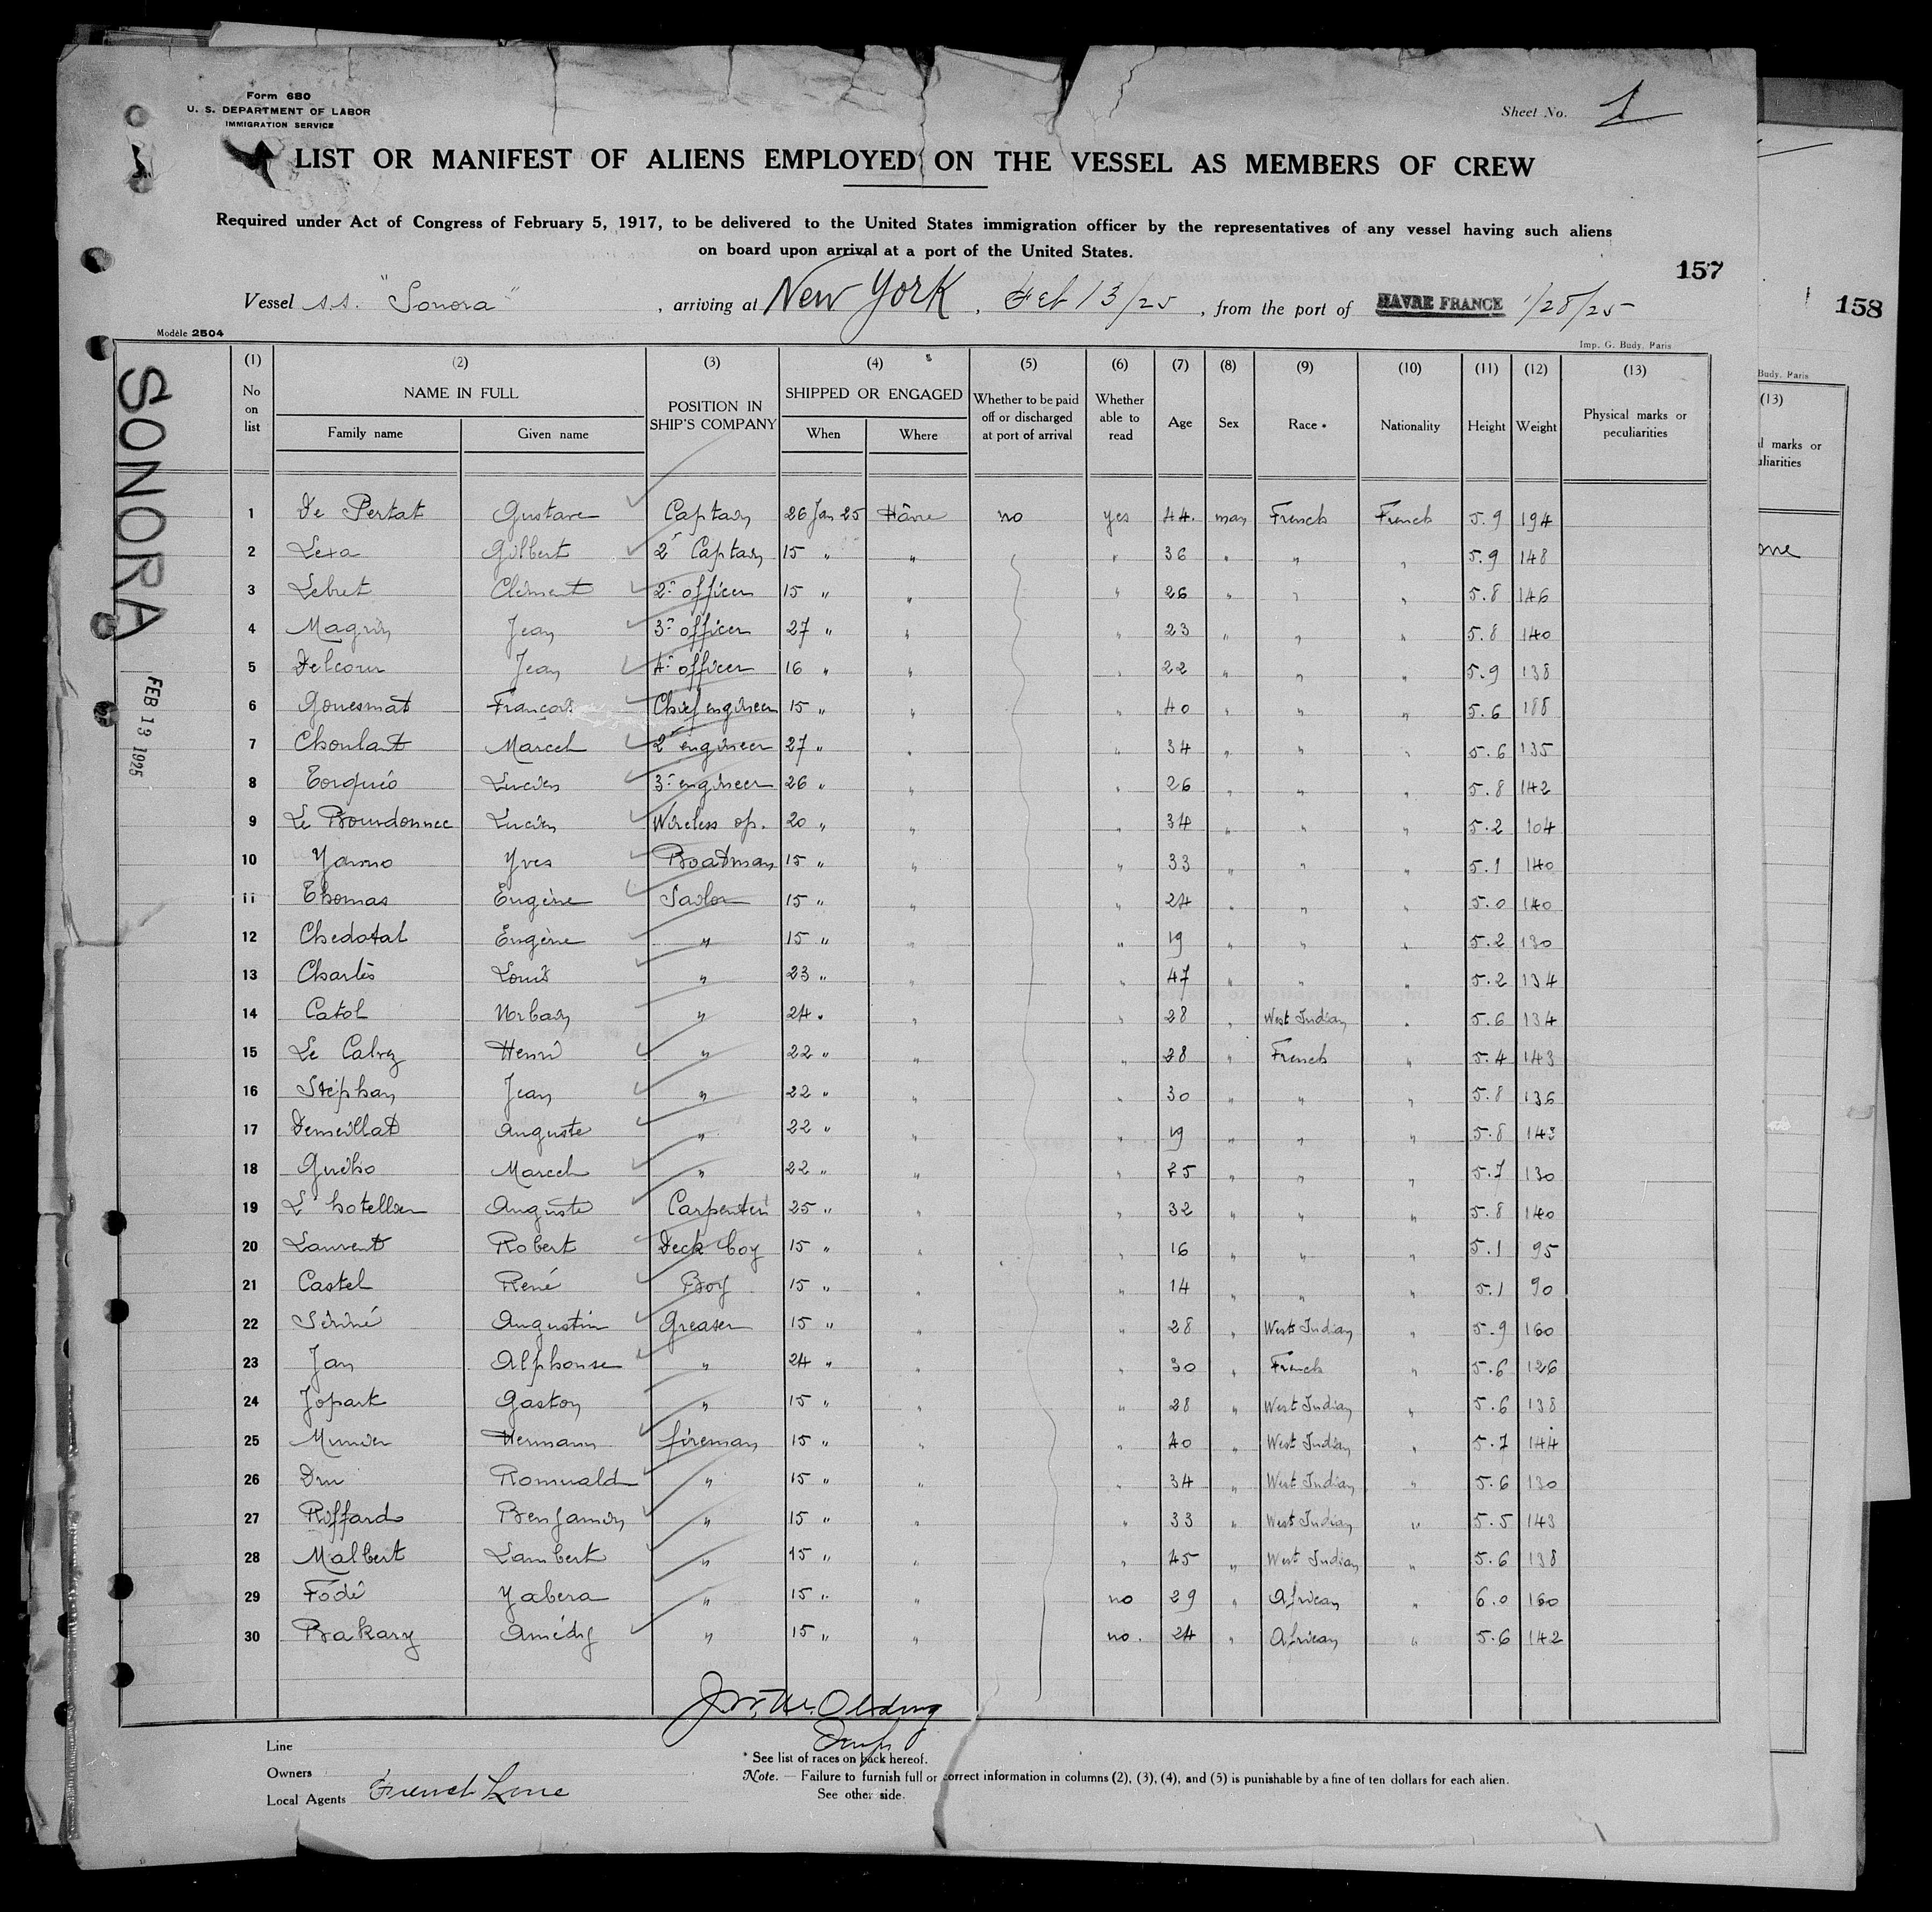 Form 680
U. S. DEPARTMENT OF LABOR
IMMIGRATION SERVICE
Sheet No. 1
LIST OR MANIFEST OF ALIENS EMPLOYED ON THE VESSEL AS MEMBERS OF CREW
Required under Act of Congress of February 5, 1917, to be delivered to the United States immigration officer by the representatives of any vessel having such aliens
on board upon arrival at a port of the United States.
157
158
Vessel s.s. "Sonora", arriving at New York, Feb 13/25, from the port of HAVRE FRANCE 1/28/25
Modèle 2504
Imp. G. Body, Paris
Body, Paris
SONORA
FEB 13 1925
(1) (2) (3) (4) (5) (6) (7) (8) (9) (10) (11) (12) (13)
No on list
NAME IN FULL
Family name Given name
POSITION IN SHIP'S COMPANY
SHIPPED OR ENGAGED
When Where
Whether to be paid off or discharged at port of arrival
Whether able to read
Age Sex Race * Nationality Height Weight
Physical marks or peculiarities
(13)
marks or
1 De Pertat Gustave Captain 26 Jan 25 Hâvre no yes 44. man French French 5.9 194
2 Lexa Gilbert 2d Captain 15 " " " 36 " " " 5.9 148
3 Lebret Clément 2d officer 15 " " " 26 " " " 5.8 146
4 Magrin Jean 3d officer 27 " " " 23 " " " 5.8 140
5 Delcour Jean 4d officer 16 " " " 22 " " " 5.9 138
6 Gouesmat François Chief engineer 15 " " " 40 " " " 5.6 188
7 Choulant Marcel 2d engineer 27 " " " 34 " " " 5.6 135
8 Lucien 3d engineer 26 " " " 26 " " " 5.8 142
9 Le Bourdonnec Lucien Wireless op. 20 " " " 34 " " " 5.2 104
10 Yves Boatman 15 " " " 33 " " " 5.1 140
11 Thomas Eugène Sailor 15 " " " 24 " " " 5.0 140
12 Chedotal Eugène " 15 " " " 19 " " " 5.2 130
13 Charlès Louis " 23 " " " 47 " " " 5.2 134
14 Catol Norbain " 24 " " " 28 " West Indian " 5.6 134
15 Le Calvez Henri " 22 " " " 28 " French " 5.4 143
16 Stéphan Jean " 22 " " " 30 " " " 5.8 136
17 Demeillat Auguste " 22 " " " 19 " " " 5.8 143
18 Guého Marcel " 22 " " " 25 " " " 5.7 130
19 L'hotellier Auguste Carpenter 25 " " " 32 " " " 5.8 140
20 Laurent Robert Deck boy 15 " " " 16 " " " 5.1 95
21 Castel René Boy 15 " " " 14 " " " 5.1 90
22 Augustin Greaser 15 " " " 28 " West Indian " 5.9 160
23 Jan Alphonse " 24 " " " 30 " French " 5.6 126
24 Jopart Gaston " 15 " " " 28 " West Indian " 5.6 138
25 Munier Hermann fireman 15 " " " 40 " West Indian " 5.7 144
26 Dru Romuald " 15 " " " 34 " West Indian " 5.6 130
27 Riffard Benjamin " 15 " " " 33 " West Indian " 5.5 143
28 Malbert Lambert " 15 " " " 45 " West Indian " 5.6 138
29 Fodé Yabera " 15 " " no 29 " African " 6.0 160
30 Bakary Amédy " 15 " " no. 24 " African " 5.6 142
Line
Owners
Local Agents French Line
* See list of races on back hereof.
Note. — Failure to furnish full or correct information in columns (2), (3), (4), and (5) is punishable by a fine of ten dollars for each alien.
See other side.